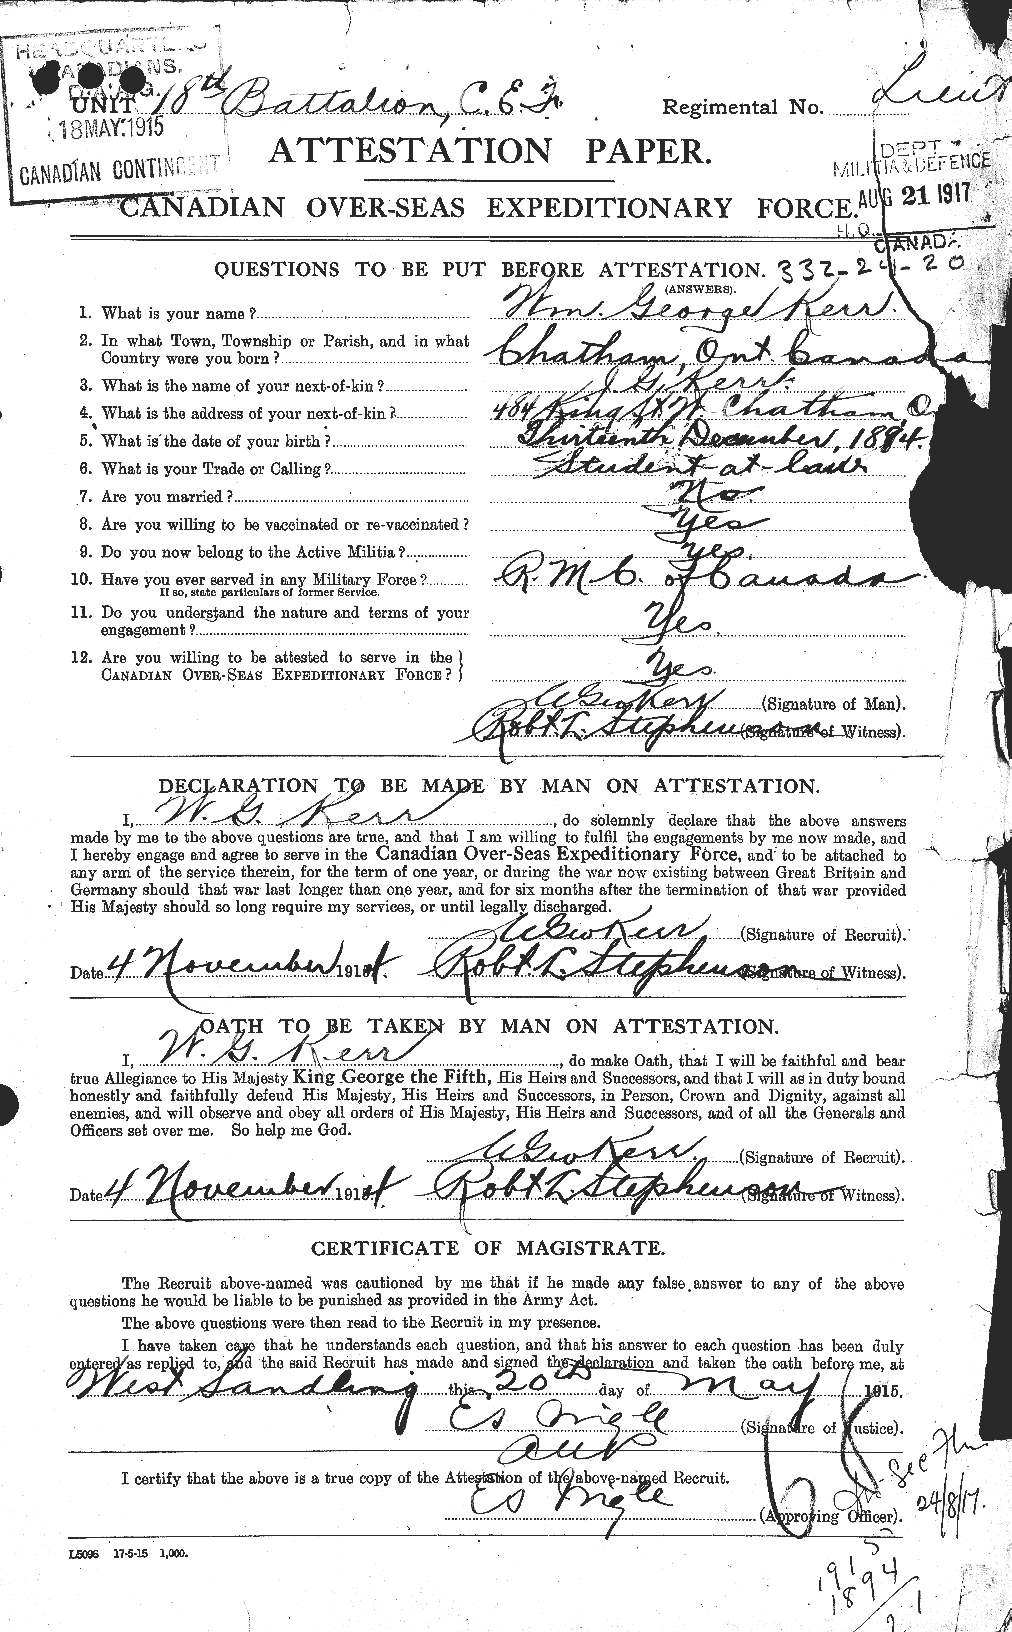 HEADQUARTERS
CANADIANS.
D.A.A.G.
18 MAY 1915
CANADIAN CONTINGENT
UNIT 18th Battalion, C.E.F.
Regimental No. Lieut
ATTESTATION PAPER.
DEPT
MILITIA & DEFENCE
AUG 21 1917
H.Q.
CANADA
CANADIAN OVER-SEAS EXPEDITIONARY FORCE.
QUESTIONS TO BE PUT BEFORE ATTESTATION. 332-24-20
(ANSWERS).
1. What is your name? Wm. George Kerr.
2. In what Town, Township or Parish, and in what
Country were you born? Chatham, Ont Canada
3. What is the name of your next-of-kin? J G Kerr
4. What is the address of your next-of-kin? 484 King St W. Chatham, O
5. What is the date of your birth? Thirteenth December, 1894.
6. What is your Trade or Calling? Student-at-Law
7. Are you married? No.
8. Are you willing to be vaccinated or re-vaccinated? Yes
9. Do you now belong to the Active Militia? Yes.
10. Have you ever served in any Military Force? R.M.C. of Canada
If so, state particulars of former Service.
11. Do you understand the nature and terms of your
engagement? Yes.
12. Are you willing to be attested to serve in the
CANADIAN OVER-SEAS EXPEDITIONARY FORCE? Yes.
W Geo Kerr (Signature of Man).
Robt. L. Stephenson (Signature of Witness).
DECLARATION TO BE MADE BY MAN ON ATTESTATION.
I, W. G. Kerr, do solemnly declare that the above answers
made by me to the above questions are true, and that I am willing to fulfil the engagements by me now made, and
I hereby engage and agree to serve in the Canadian Over-Seas Expeditionary Force, and to be attached to
any arm of the service therein, for the term of one year, or during the war now existing between Great Britain and
Germany should that war last longer than one year, and for six months after the termination of that war provided
His Majesty should so long require my services, or until legally discharged.
W Geo Kerr (Signature of Recruit).
Date 4 November 1914. Robt. L. Stephenson (Signature of Witness).
OATH TO BE TAKEN BY MAN ON ATTESTATION.
I, W. G. Kerr, do make Oath, that I will be faithful and bear
true Allegiance to His Majesty King George the Fifth, His Heirs and Successors, and that I will as in duty bound
honestly and faithfully defend His Majesty, His Heirs and Successors, in Person, Crown and Dignity, against all
enemies, and will observe and obey all orders of His Majesty, His Heirs and Successors, and of all the Generals and
Officers set over me. So help me God.
W Geo Kerr. (Signature of Recruit).
Date 4 November 1914 Robt. L. Stephenson (Signature of Witness).
CERTIFICATE OF MAGISTRATE.
The Recruit above-named was cautioned by me that if he made any false answer to any of the above
questions he would be liable to be punished as provided in the Army Act.
The above questions were then read to the Recruit in my presence.
I have taken care that he understands each question, and that his answer to each question has been duly
entered as replied to, and the said Recruit has made and signed the declaration and taken the oath before me, at
West Sandling this 20th day of May 1915.
ES Wigle (Signature of Justice).
I certify that the above is a true copy of the Attestation of the above-named Recruit.
ES Wigle
(Approving Officer).
See
24/8/17.
L5096 17-5-15 1,000.
1915
1894
21